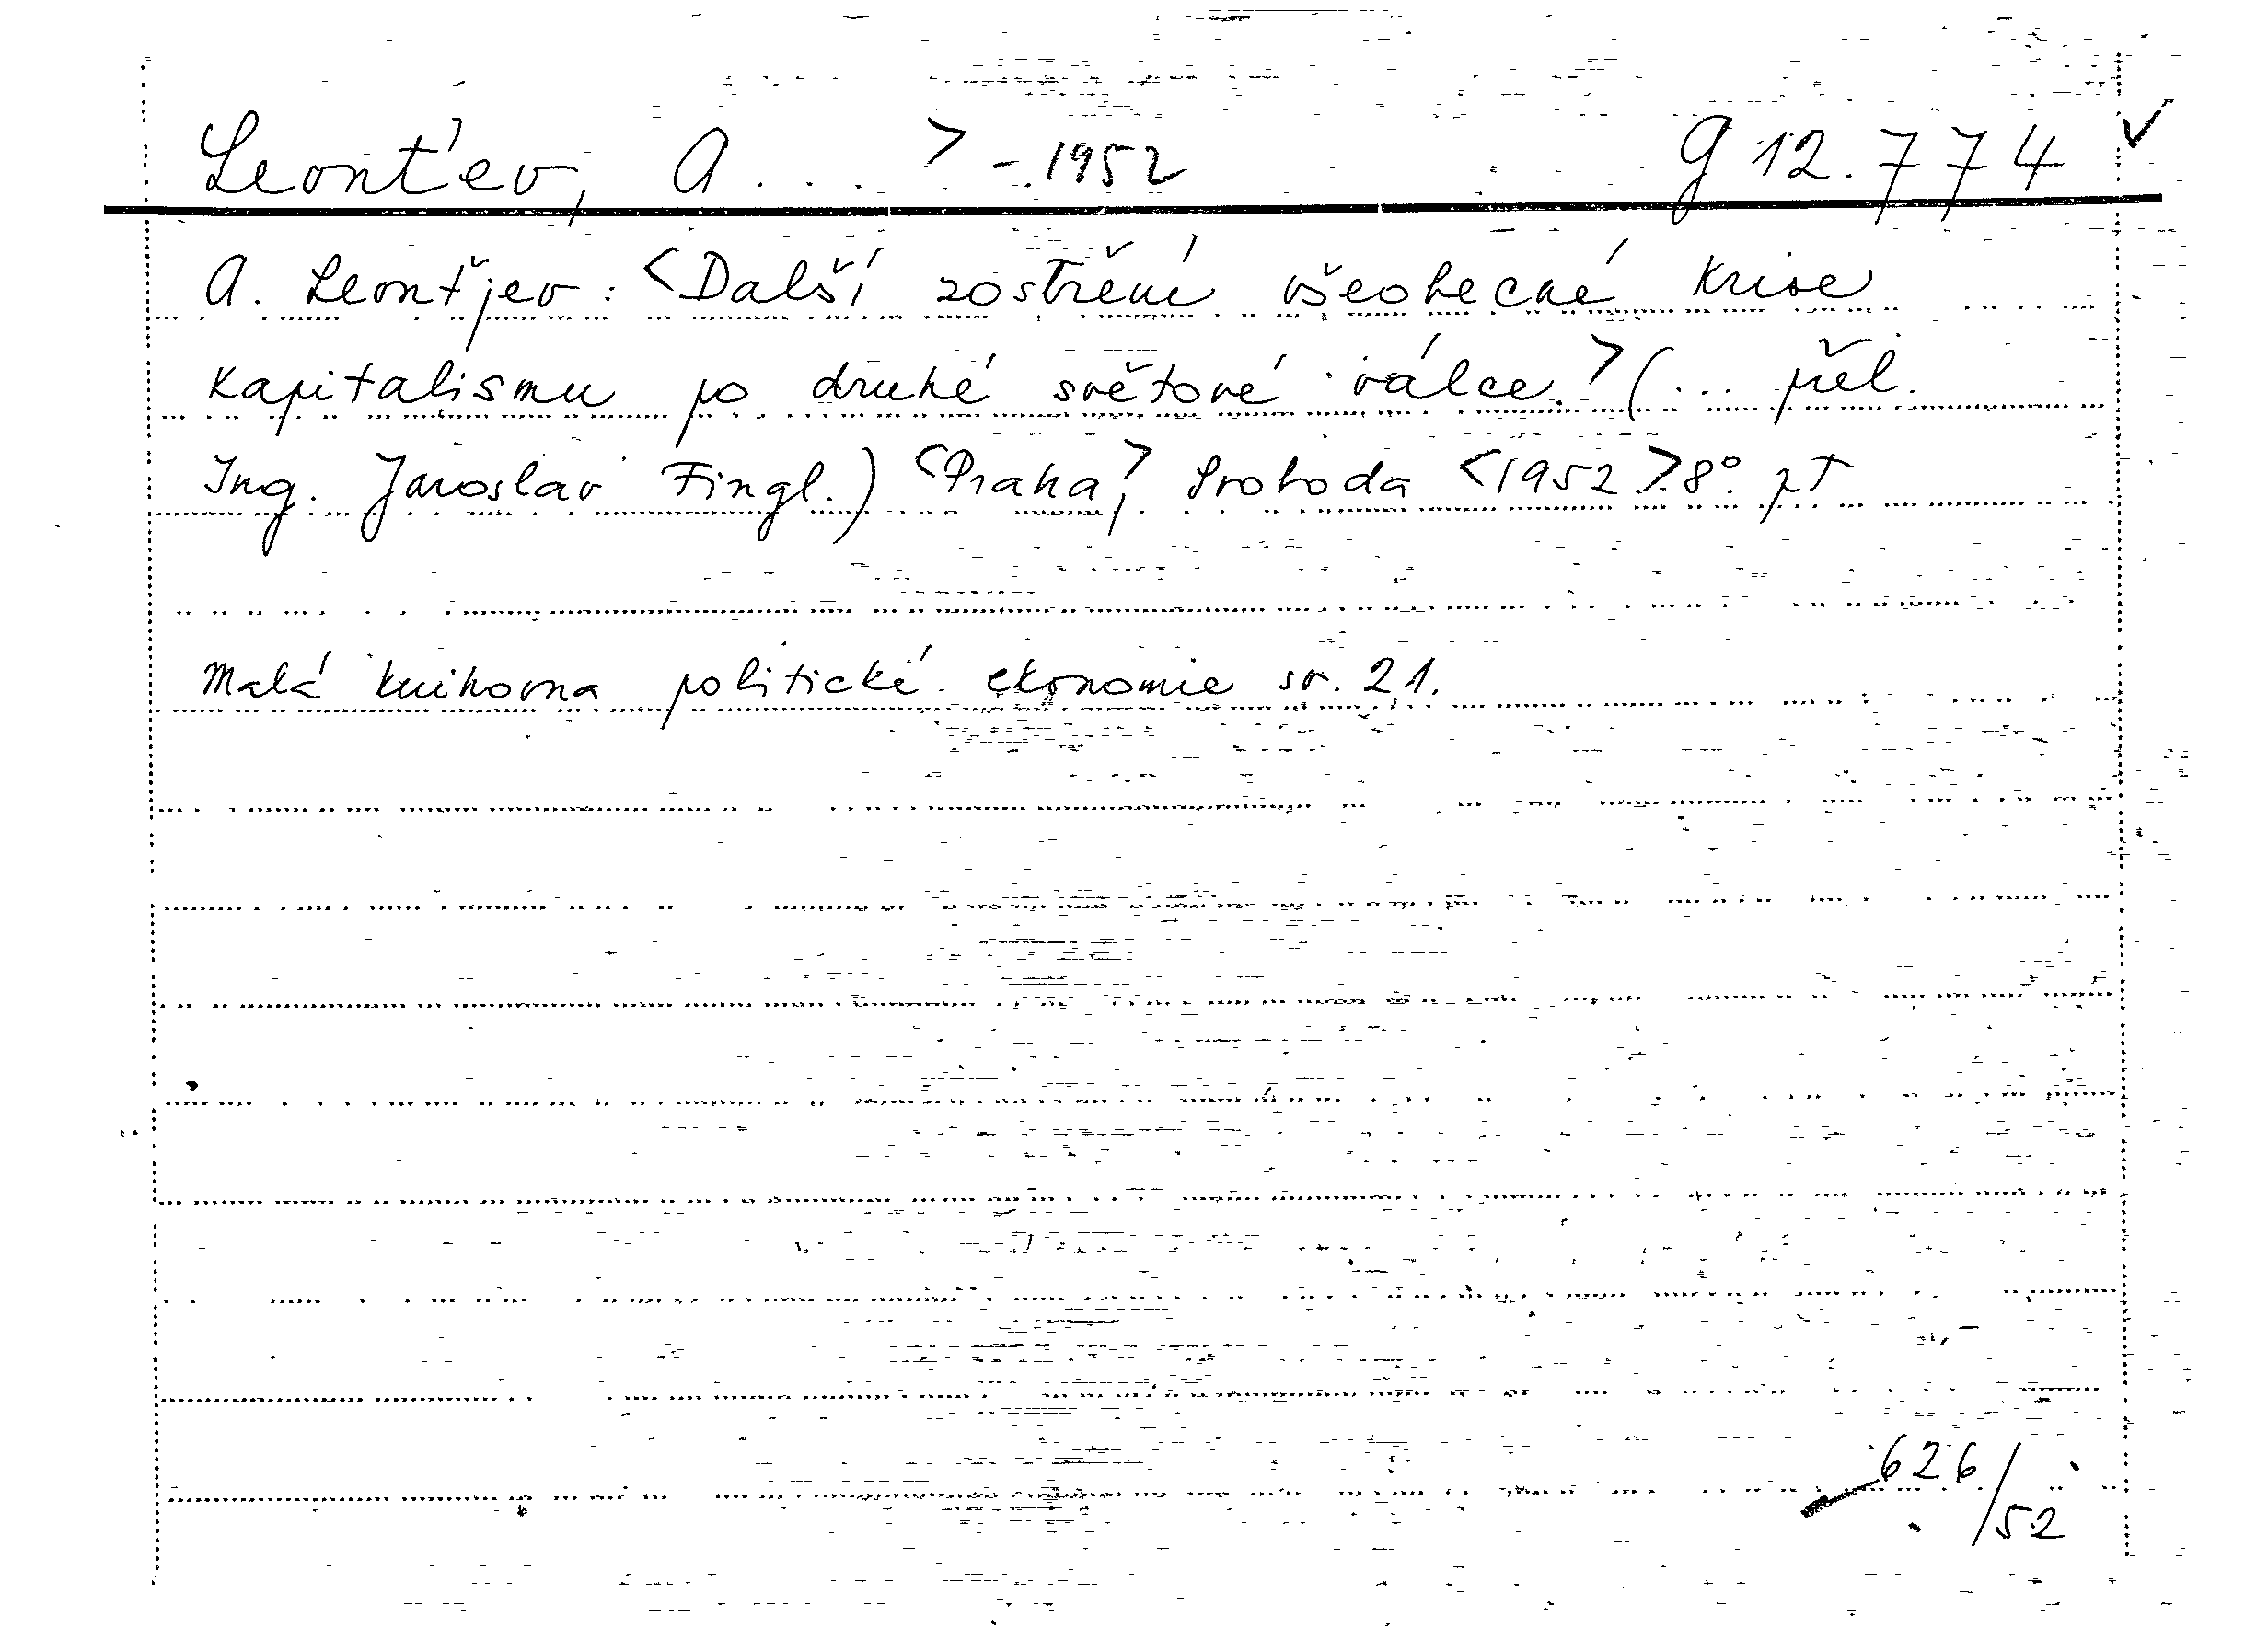 Leonťev, A . . . > - 1952 g 12.774 ✓
A. Leonťjev: <Další zostření všeobecné krise
kapitalismu po druhé světové válce.> (... přel.
Ing. Jaroslav Fingl.) <Praha,> Svoboda <1952.> 8°. pt
Malá knihovna politické ekonomie sv. 21.
626/52